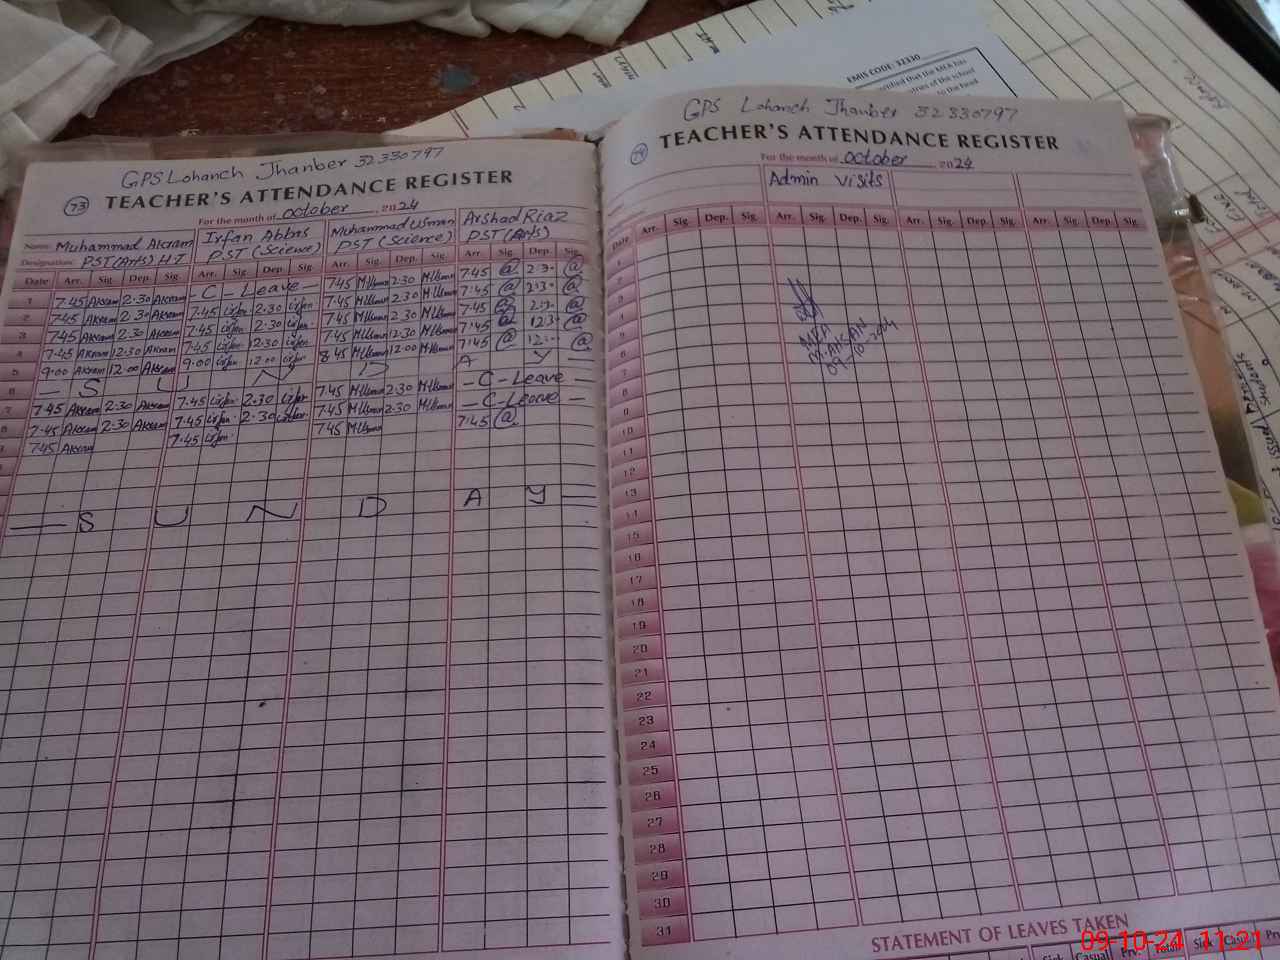 EMIS CODE: 32330
GPS Lohanch Jhanber 32330797
73 TEACHER'S ATTENDANCE REGISTER
For the month of October, 2024
Name: Muhammad Akram Irfan Abbas Muhammad Usman Arshad Riaz
Designation: PST(Arts) H.T PST (Science) PST (Science) PST (Arts)
Date Arr. Sig. Dep. Sig. Arr. Sig. Dep. Sig. Arr. Sig. Dep. Sig. Arr. Sig. Dep. Sig.
1 7.45 Akram 2.30 Akram - C - Leave - 7.45 M Usman 2.30 M Usman 7.45 @ 2.30 @
2 7.45 Akram 2.30 Akram 7.45 Irfan 2.30 Irfan 7.45 M Usman 2.30 M Usman 7.45 @ 2.30 @
3 7.45 Akram 2.30 Akram 7.45 Irfan 2.30 Irfan 7.45 M Usman 2.30 M Usman 7.45 @ @
4 7.45 Akram 12.30 Akram 7.45 Irfan 12.30 Irfan 7.45 M Usman 12.30 M Usman 7.45 @ 12.30 @
5 9.00 Akram 12.00 Akram 9.00 Irfan 12.00 Irfan 8.45 M Usman 12.00 M Usman 7.45 @ @
6 — S U N D A Y —
7 7.45 Akram 2.30 Akram 7.45 Irfan 2.30 Irfan 7.45 M Usman 2.30 M Usman - C - Leave -
8 7.45 Akram 2.30 Akram 7.45 Irfan 2.30 Irfan 7.45 M Usman 2.30 M Usman - C - Leave -
9 7.45 Akram 7.45 Irfan 7.45 M Usman 7.45 @
— S U N D A Y —
GPS Lohanch Jhanber 32330797
74 TEACHER'S ATTENDANCE REGISTER
For the month of October, 2024
Admin Visits
Date Arr. Sig. Dep. Sig. Arr. Sig. Dep. Sig. Arr. Sig. Dep. Sig. Arr. Sig. Dep. Sig.
1
2
3
4
5
6
7
8
9
10
11
12
13
14
15
16
17
18
19
20
21
22
23
24
25
26
27
28
29
30
31
MEA
M.AHSAN
STATEMENT OF LEAVES TAKEN
Sick Casual Prv. Total Sick Casual Prv.
09-10-24 11:21